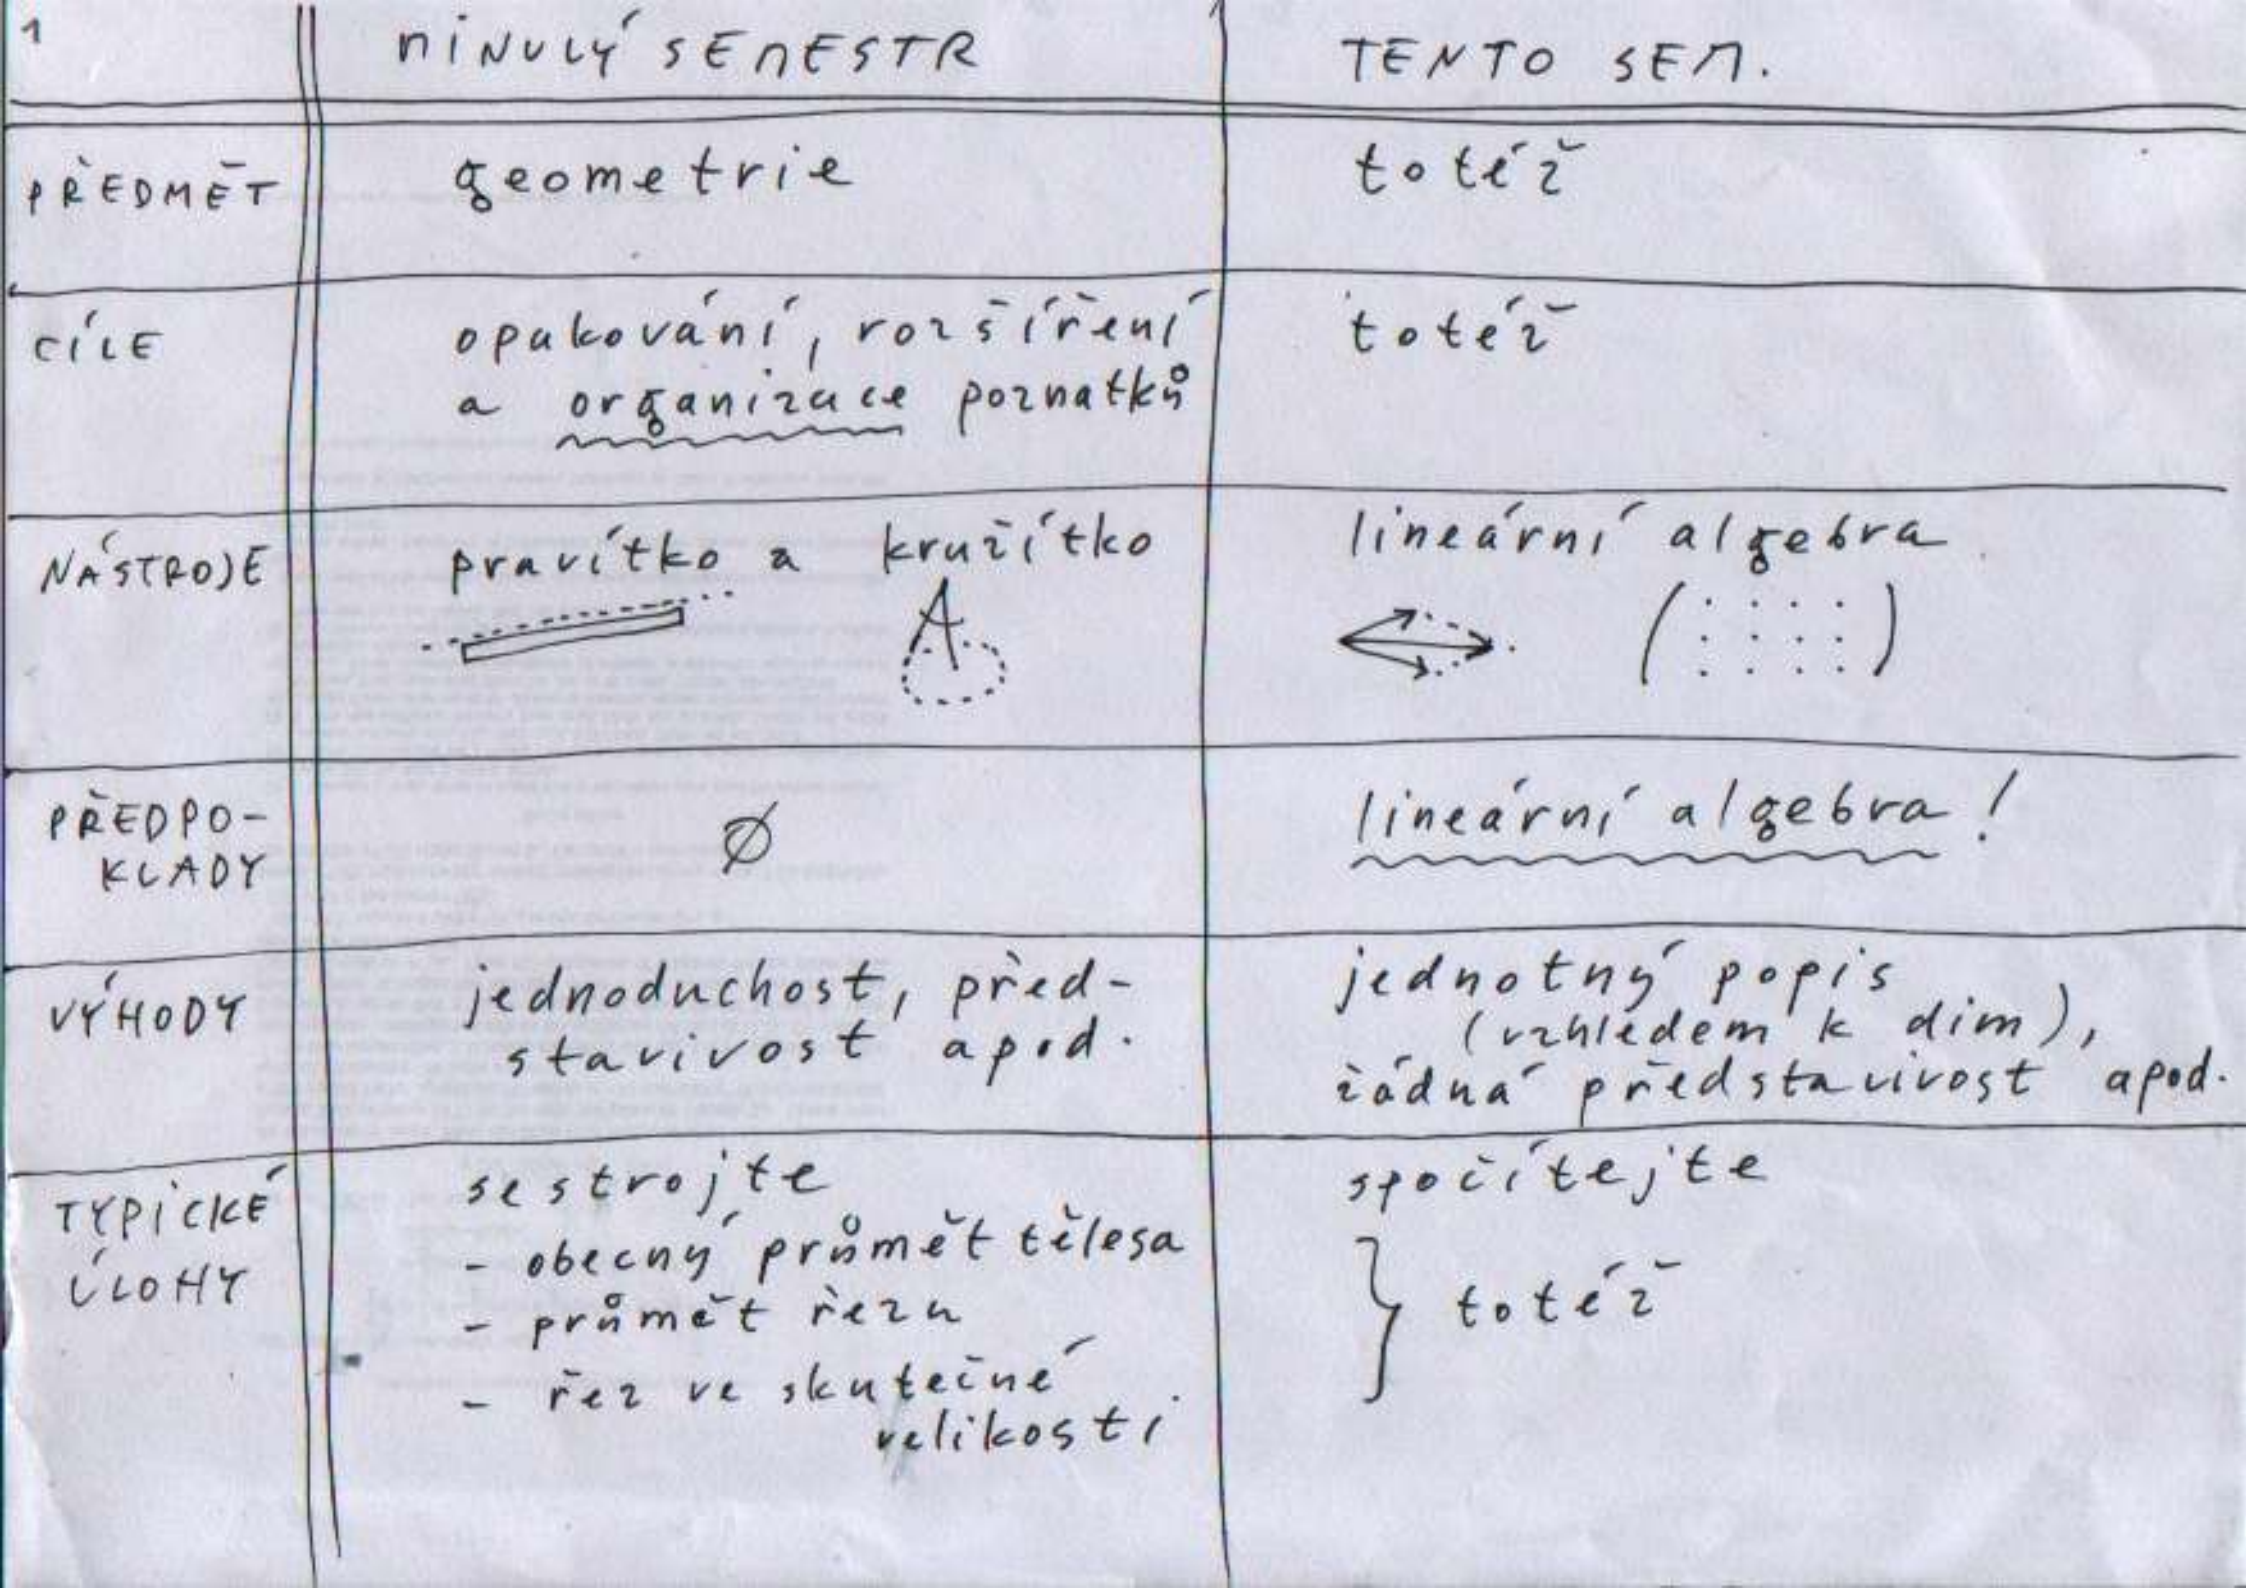 1
MINULÝ SEMESTR
TENTO SEM.
PŘEDMĚT
geometrie
totéž
CÍLE
opakování, rozšíření
a organizace poznatků
totéž
NÁSTROJE
pravítko a kružítko
lineární algebra
PŘEDPO-
KLADY
∅
lineární algebra!
VÝHODY
jednoduchost, před-
stavivost apod.
jednotný popis
(vzhledem k dim),
žádná představivost apod.
TYPICKÉ
ÚLOHY
sestrojte
- obecný průmět tělesa
- průmět řezu
- řez ve skutečné
velikosti
spočítejte
} totéž